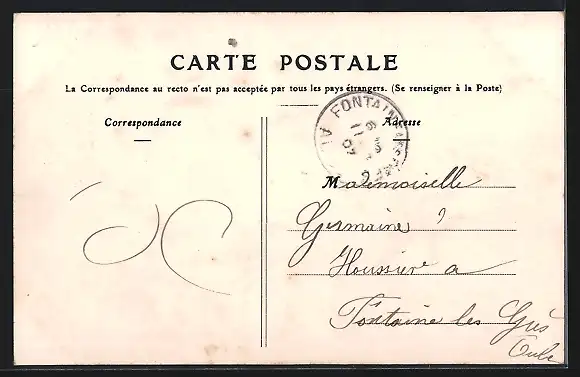 CARTE POSTALE
La Correspondance au recto n'est pas acceptée par tous les pays étrangers. (Se renseigner à la Poste)
Correspondance
Adresse
FONTAINE
11
07
Mademoiselle
Germaine
Houssier a
Fontaine les Grès
Aube